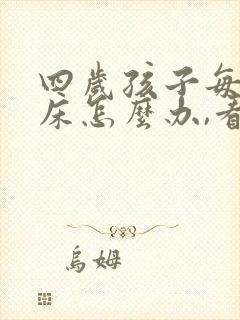 四歲孩子每
床怎麼办,看
烏姆